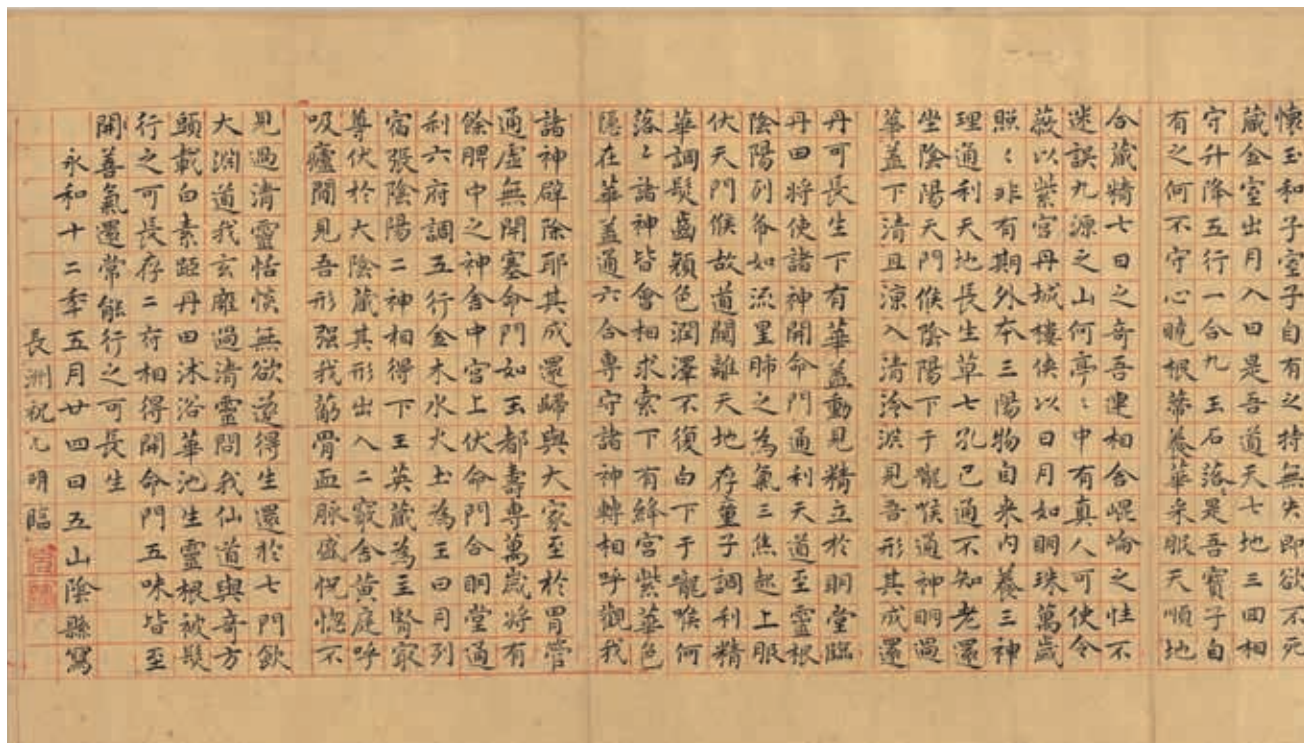 懷玉和子室子自有之持無失即欲不死
藏金室出月入日是吾道天七地三回相
守升降五行一合九玉石落〻是吾寶子自
有之何不守心曉根蒂養華采服天順地
合藏精七日之奇吾連相舍崐崘之性不
迷誤九源之山何亭〻中有真人可使令
蔽以紫宮丹城樓俠以日月如明珠萬歲
照〻非有期外本三陽物自来内養三神
理通利天地長生草七孔已通不知老還
坐陰陽天門候陰陽下于嚨喉通神明過
華蓋下清且涼入清泠淵見吾形其成還
丹可長生下有華蓋動見精立於明堂臨
丹田將使諸神開命門通利天道至靈根
陰陽列布如流星肺之為氣三焦起上服
伏天門候故道闚離天地存童子調利精
華調髮齒顏色潤澤不復白下于嚨喉何
落〻諸神皆會相求索下有絳宮紫華色
隱在華蓋通六合專守諸神轉相呼觀我
諸神辟除耶其成還歸與大家至於胃管
通虛無閉塞命門如玉都壽專萬歲將有
餘脾中之神舍中宮上伏命門合明堂通
利六府調五行金木水火土為王日月列
宿張陰陽二神相得下玉英藏為主腎冣
尊伏於大陰藏其形出入二竅舍黃庭呼
吸廬間見吾形强我筋骨血脉盛恍惚不
見過清靈恬惔無欲遂得生還於七門飲
大淵道我玄雍過清靈問我仙道與奇方
頭載白素距丹田沐浴華池生靈根被髮
行之可長存二府相得開命門五味皆至
開善氣還常能行之可長生
永和十二年五月廿四日五山陰縣寫
長洲祝允明臨